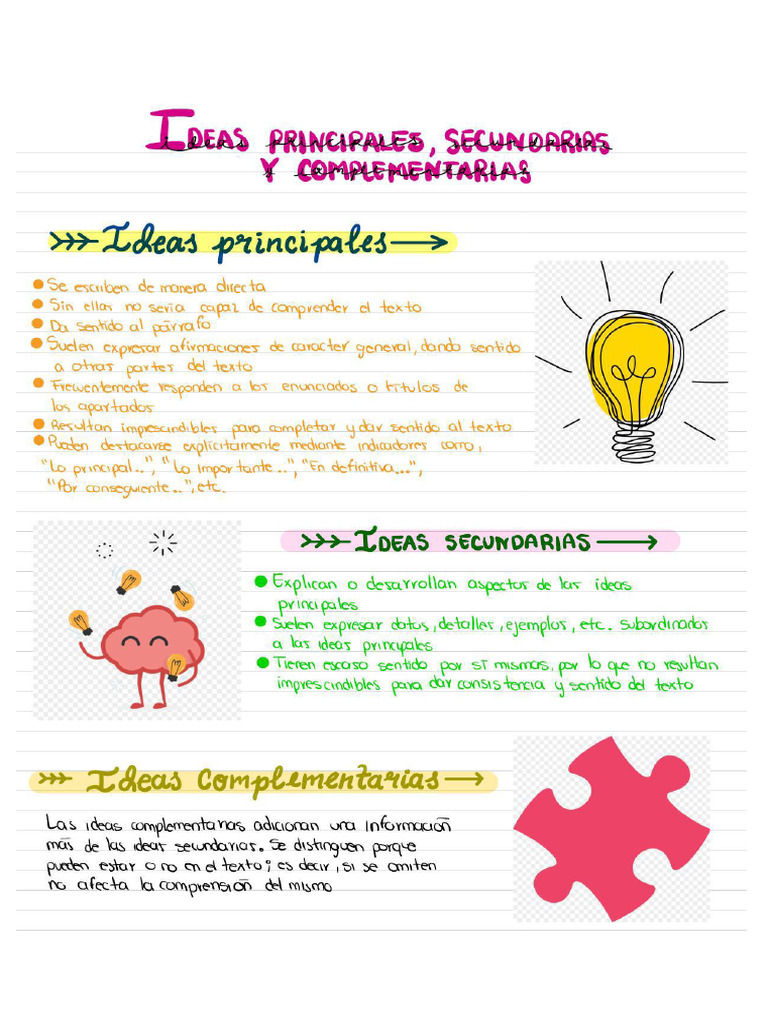 IDEAS PRINCIPALES, SECUNDARIAS
Y COMPLEMENTARIAS
Ideas principales
Se escriben de manera directa
Sin ellas no sería capaz de comprender el texto
Da sentido al párrafo
Suelen expresar afirmaciones de carácter general, dando sentido
a otras partes del texto
Frecuentemente responden a los enunciados o títulos de
los apartados
Resultan imprescindibles para completar y dar sentido al texto
Pueden destacarse explícitamente mediante indicadores como,
"Lo principal..", "Lo importante..", "En definitiva...",
"Por conseguiente..", etc.
IDEAS SECUNDARIAS
Explican o desarrollan aspectos de las ideas
principales
Suelen expresar datos, detalles, ejemplos, etc. subordinados
a las ideas principales
Tienen escaso sentido por sí mismas, por lo que no resultan
imprescindibles para dar consistencia y sentido del texto
Ideas complementarias
Las ideas complementarias adicionan una información
más de las ideas secundarias. Se distinguen porque
pueden estar o no en el texto; es decir, si se omiten
no afecta la comprensión del mismo